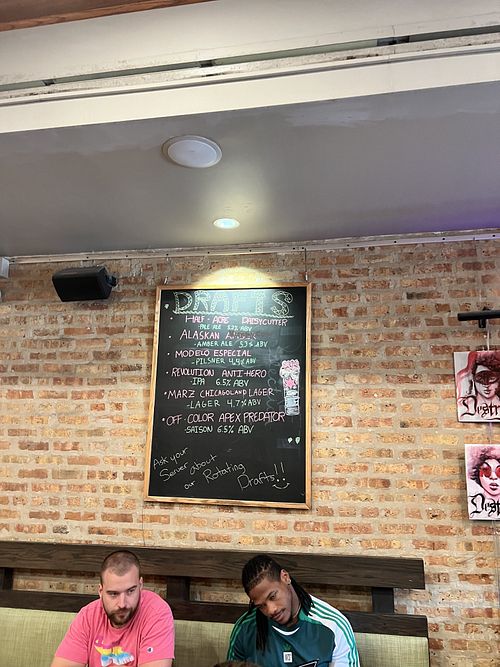 DRAFTS
• HALF · ACRE DAISYCUTTER
-PALE ALE 5.2% ABV
• ALASKAN AMBER
-AMBER ALE 5.3% ABV
• MODELO ESPECIAL
-PILSNER 4.4% ABV
• REVOLUTION ANTI-HERO
-IPA 6.5% ABV
• MARZ CHICAGOLAND LAGER
-LAGER 4.7% ABV
• OFF · COLOR APEX PREDATOR
-SAISON 6.5% ABV
Ask your
Server about
our Rotating
Drafts!!